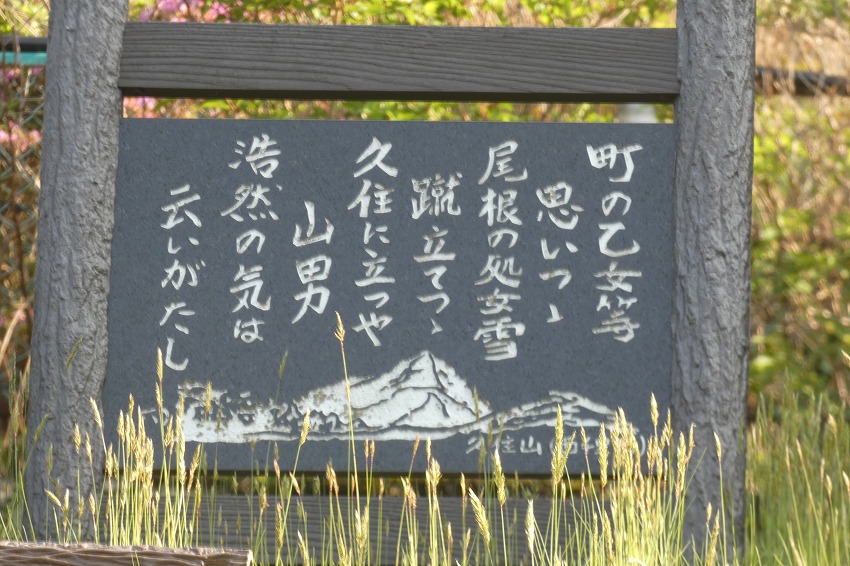 町の乙女等
思いつゝ
尾根の処女雪
蹴立てつゝ
久住に立つや
山男
浩然の気は
云いがたし
久住山